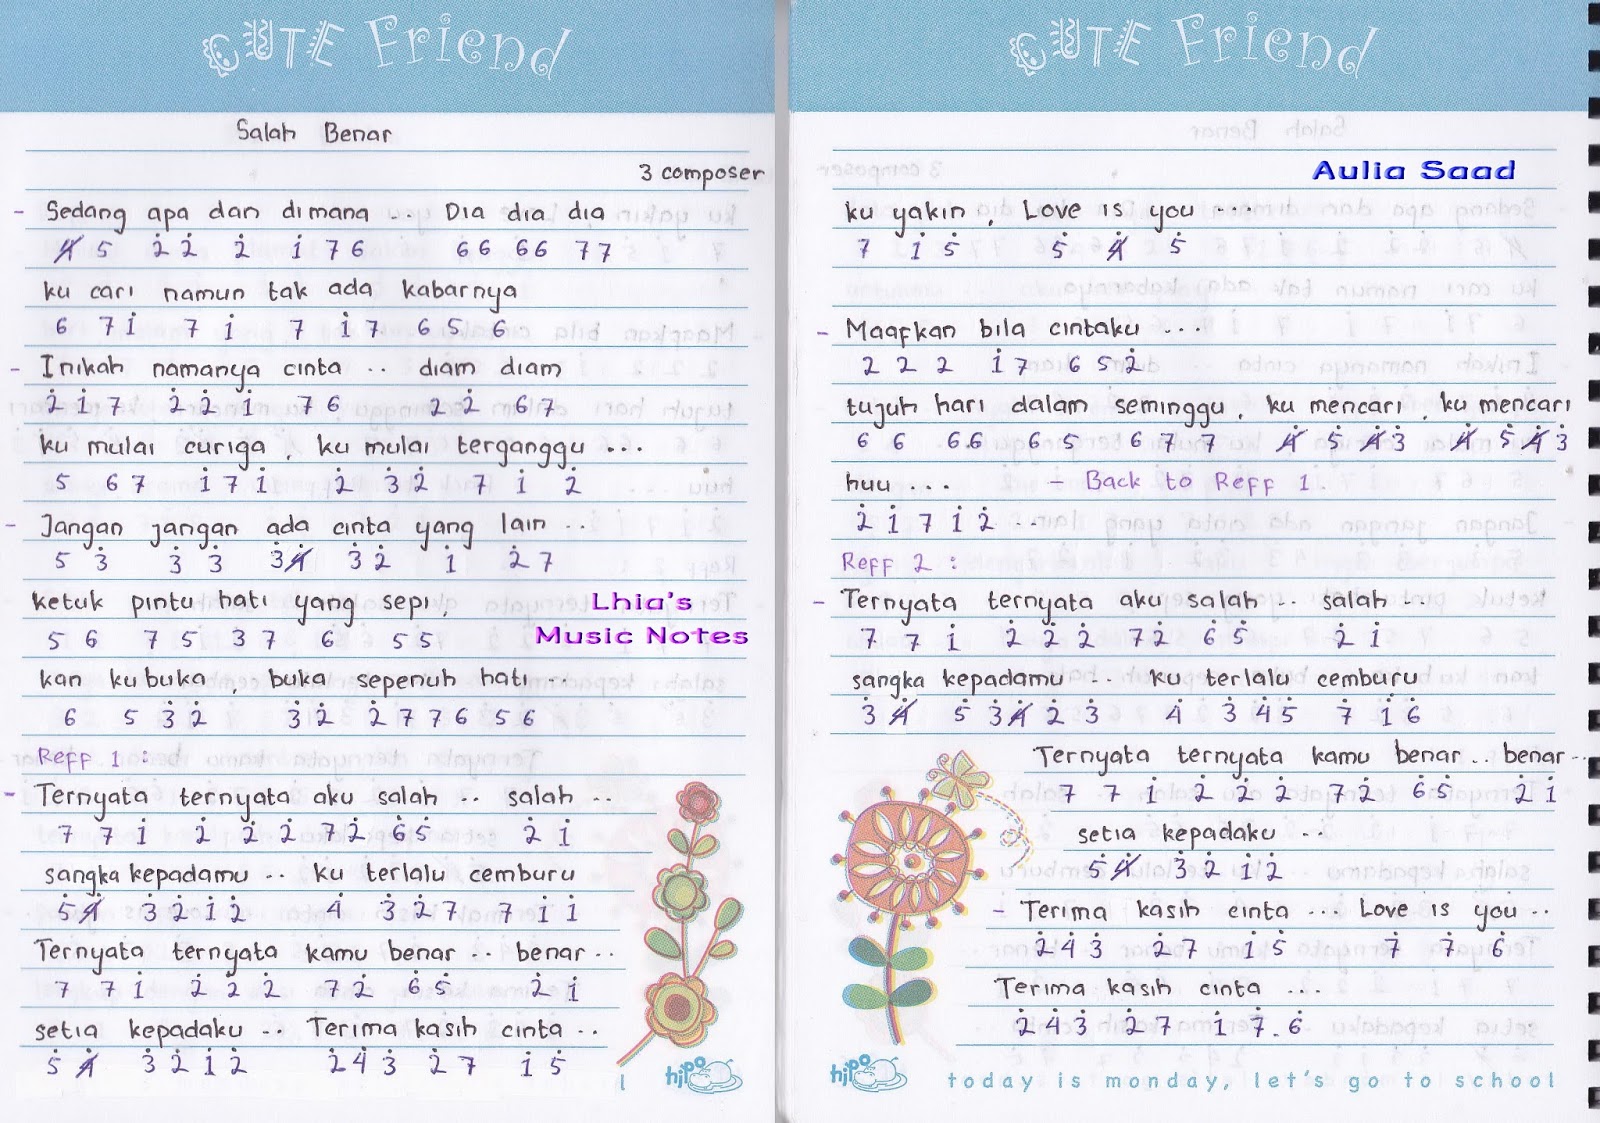 CUTE Friend
Salah Benar
3 composer
- Sedang apa dan dimana ... Dia dia dia
4̸ 5 2̇ 2̇ 2̇ 1̇ 7 6 6 6 6 6 7 7
ku cari namun tak ada kabarnya
6 7 1̇ 7 1̇ 7 1̇ 7 6 5 6
- Inikah namanya cinta .. diam diam
2̇ 1̇ 7 2̇ 2̇ 1̇ 7 6 2̇ 2̇ 6 7
ku mulai curiga, ku mulai terganggu ...
5 6 7 1̇ 7 1̇ 2̇ 3̇ 2̇ 7 1̇ 2̇
- Jangan jangan ada cinta yang lain ..
5 3̇ 3̇ 3̇ 3̇ 4̸̇ 3̇ 2̇ 1̇ 2̇ 7
ketuk pintu hati yang sepi,
5 6 7 5 3 7 6 5 5
Lhia's
Music Notes
kan kubuka, buka sepenuh hati ..
6 5 3̇ 2̇ 3̇ 2̇ 2̇ 7 7 6 5 6
Reff 1 :
- Ternyata ternyata aku salah .. salah ..
7 7 1̇ 2̇ 2̇ 2̇ 7 2̇ 6̇ 5̇ 2̇ 1̇
sangka kepadamu .. ku terlalu cemburu
5̇ 4̸̇ 3̇ 2̇ 1̇ 2̇ 4̇ 3̇ 2̇ 7 7 1̇ 1̇
Ternyata ternyata kamu benar .. benar ..
7 7 1̇ 2̇ 2̇ 2̇ 7 2̇ 6̇ 5̇ 2̇ 1̇
setia kepadaku .. Terima kasih cinta ..
5̇ 4̸̇ 3̇ 2̇ 1̇ 2̇ 2̇ 4̇ 3̇ 2̇ 7 1̇ 5̇
1 hipo
CUTE Friend
Aulia Saad
ku yakin, Love is you ...
7 1̇ 5̇ 5̇ 4̸̇ 5̇
- Maafkan bila cintaku ...
2̇ 2̇ 2̇ 1̇ 7 6 5 2̇
tujuh hari dalam seminggu, ku mencari, ku mencari
6 6 6 6 6 5 6 7 7 4̸̇ 5̇ 4̸̇ 3̇ 4̸̇ 5̇ 4̸̇ 3̇
huu ... - Back to Reff 1.
2̇ 1̇ 7 1̇ 2̇ ..
Reff 2 :
- Ternyata ternyata aku salah .. salah ..
7 7 1̇ 2̇ 2̇ 2̇ 7 2̇ 6̇ 5̇ 2̇ 1̇
sangka kepadamu .. ku terlalu cemburu
3̇ 4̸̇ 5̇ 3̇ 4̸̇ 2̇ 3̇ 4̇ 3̇ 4̇ 5̇ 7 1̇ 6̇
Ternyata ternyata kamu benar .. benar ..
7 7 1̇ 2̇ 2̇ 2̇ 7 2̇ 6̇ 5̇ 2̇ 1̇
setia kepadaku ..
5̇ 4̸̇ 3̇ 2̇ 1̇ 2̇
- Terima kasih cinta ... Love is you ..
2̇ 4̇ 3̇ 2̇ 7 1̇ 5̇ 7̇ 7̇ 6̇
Terima kasih cinta ...
2̇ 4̇ 3̇ 2̇ 7 1̇ 7 . 6̇
hipo today is monday, let's go to school